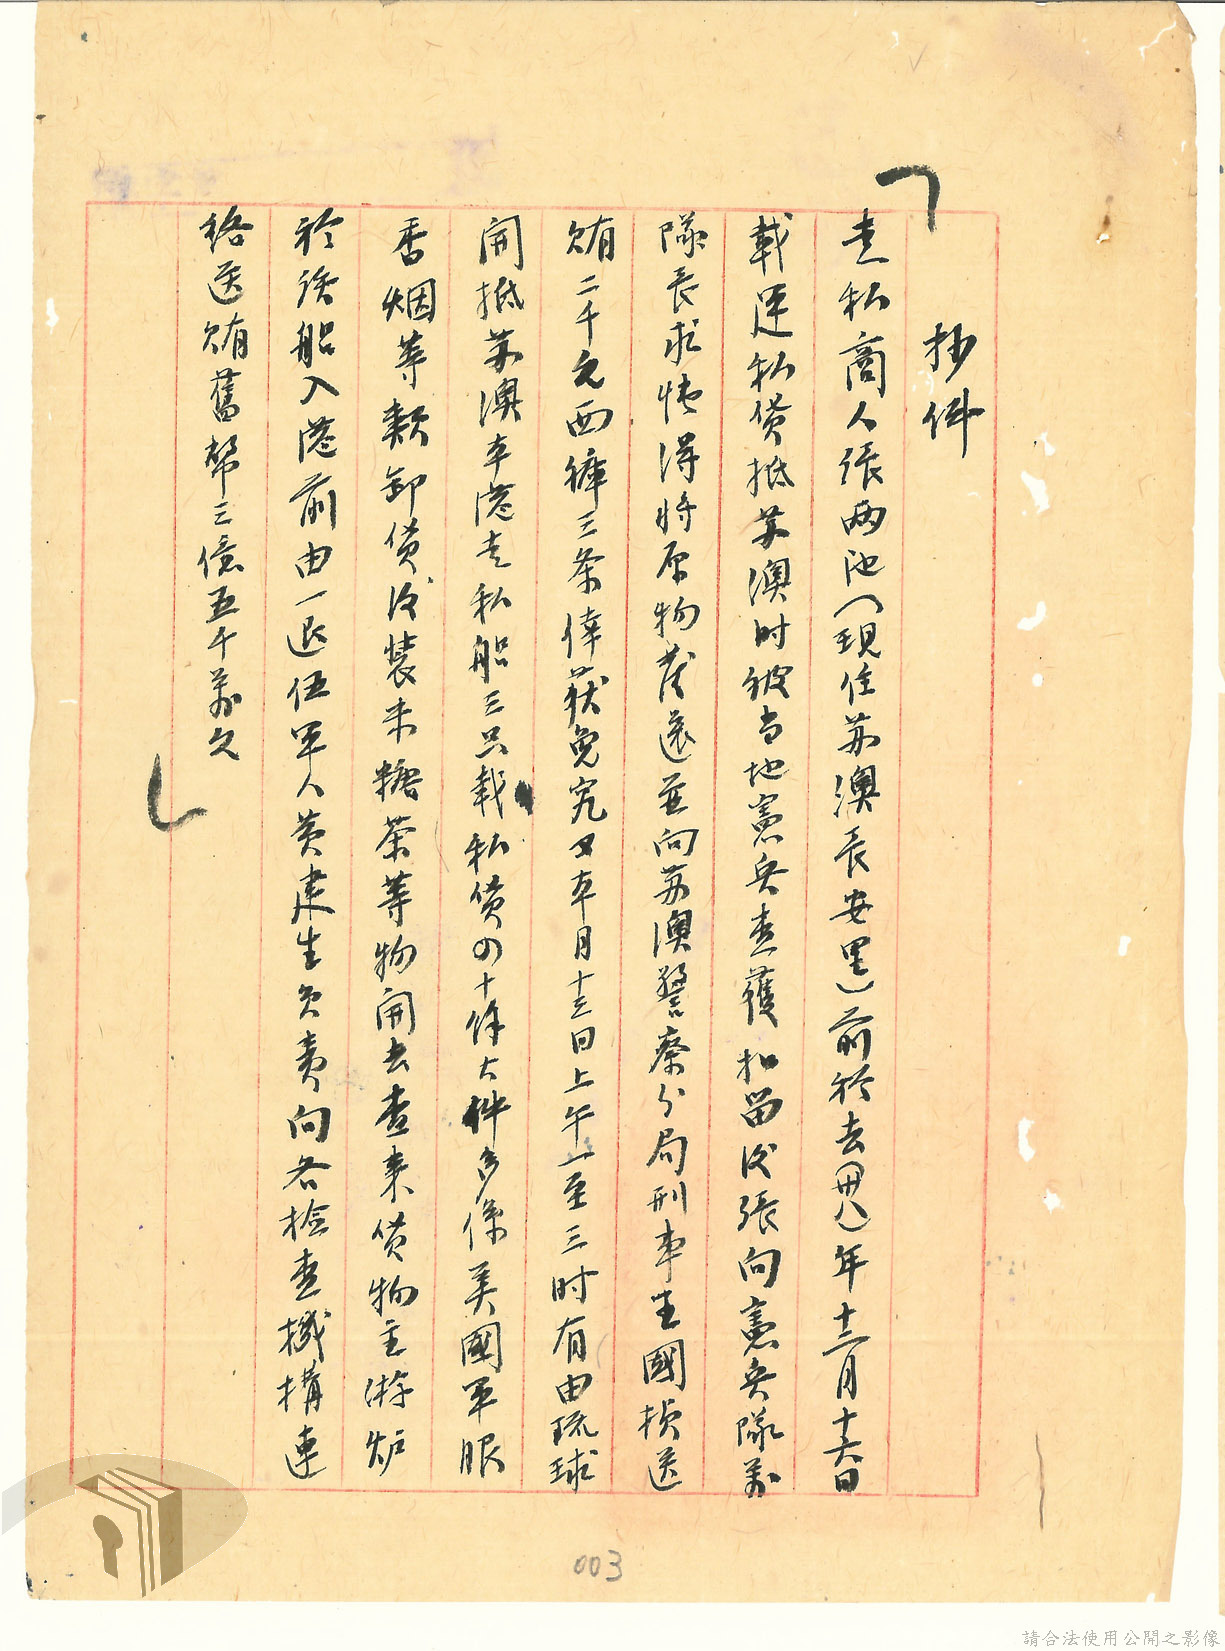 抄件
走私商人張兩池（現住苏澳長安里）前於去（卅八）年十二月十六日
載運私貨抵苏澳时被当地憲兵查獲扣留後張向憲兵隊萬
隊長求情得將原物發還並向苏澳警察分局刑事王國楨送
賄二千元西褲三条倖获免究又本月十三日上午二至三时有由琉球
開抵苏澳本港走私船三只載私貨四十余大件多係美國軍服
香烟等類卸貨後裝米糖茶等物開去查来貨物主游炉
於該船入港前由一退伍軍人黄建生負責向各檢查機構連
絡送賄舊幣三億五千萬久
003
請合法使用公開之影像